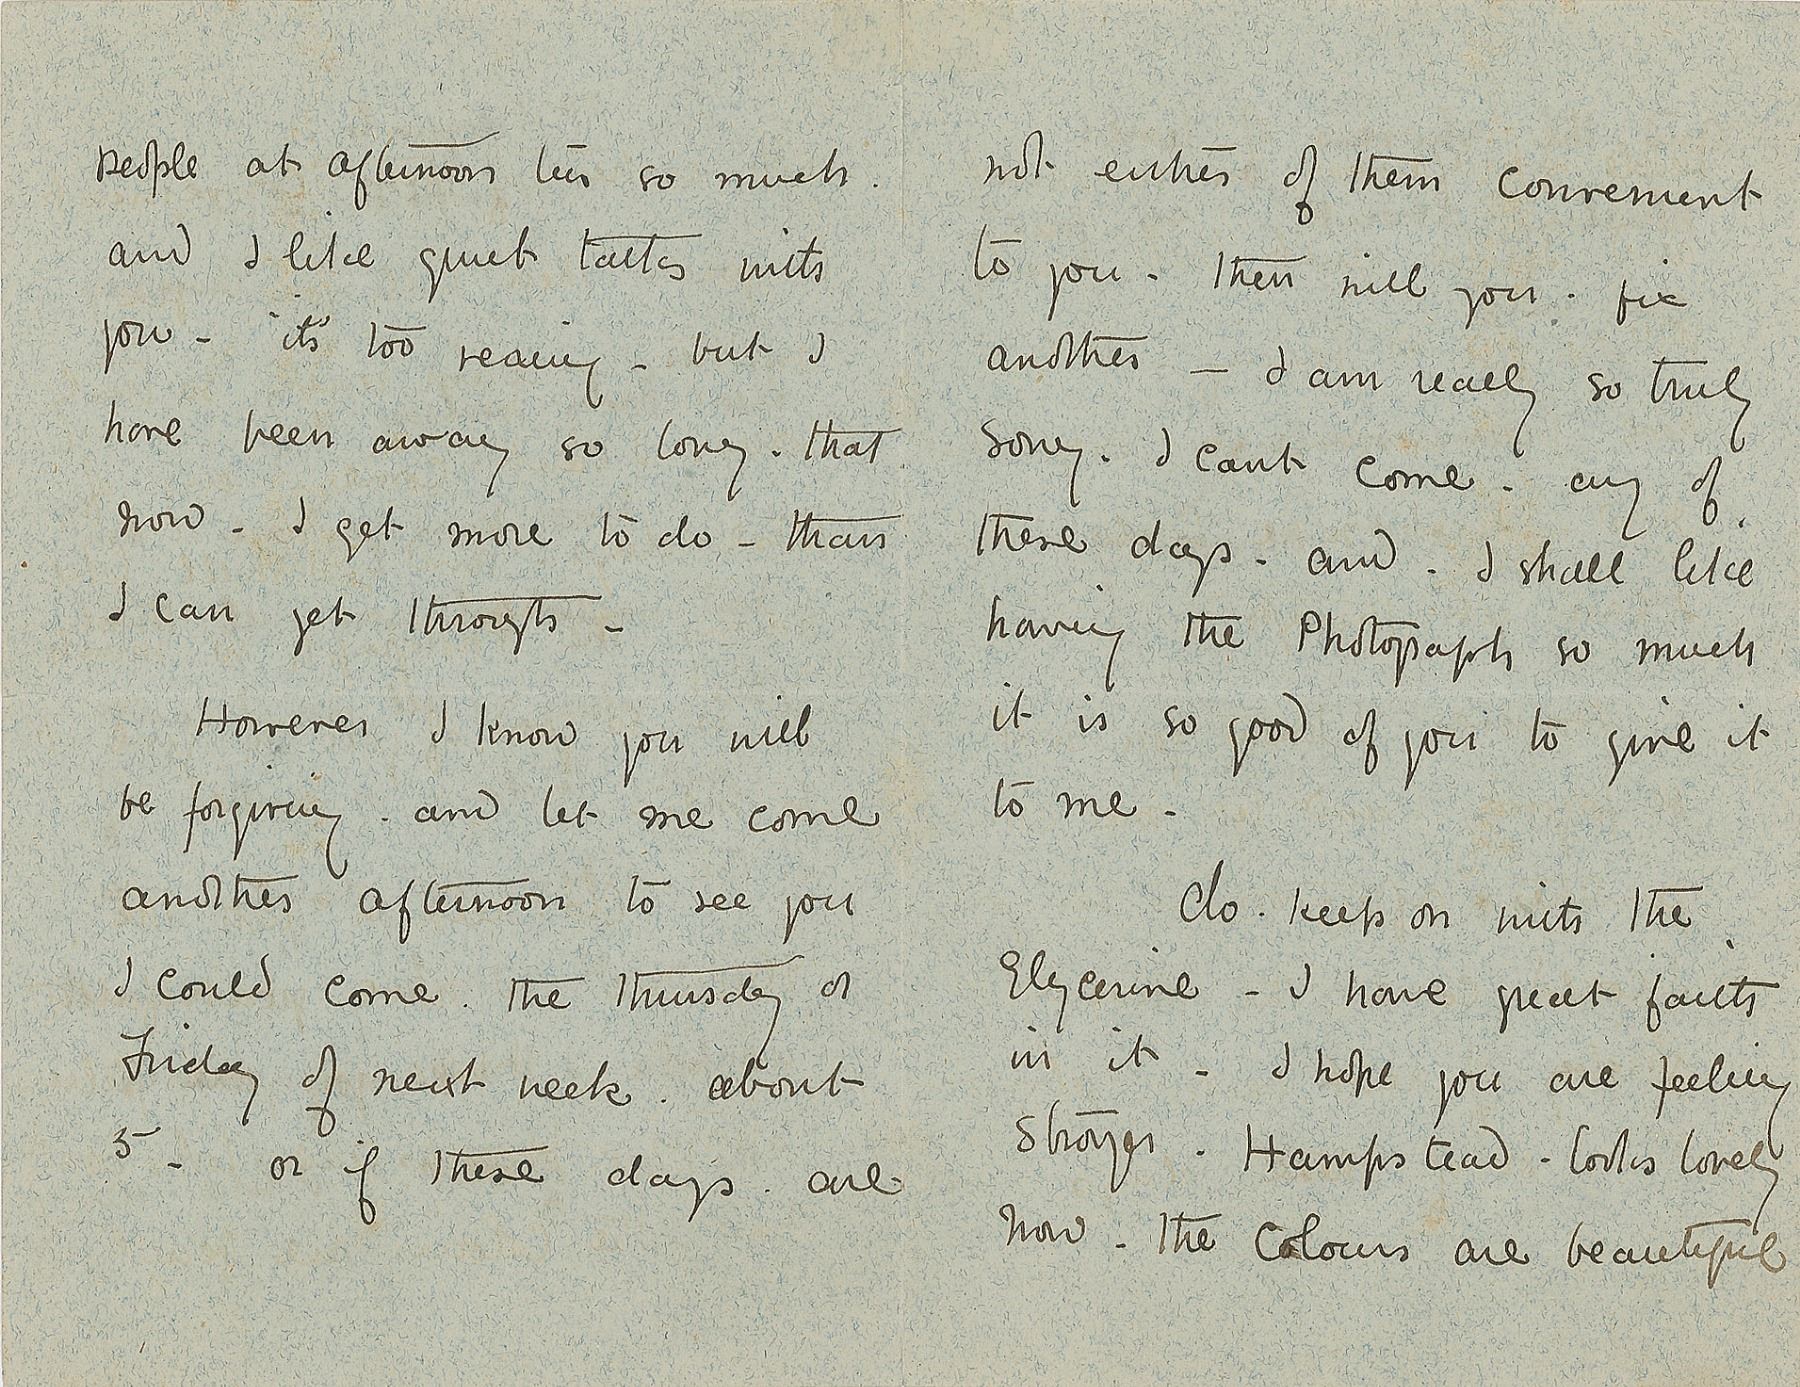 people at afternoon tea so much.
and I like quiet talks with
you - it's too  - but I
have been away so long. that
now - I get more to do - than
I can get through -
However I know you will
be forgiving. and let me come
another afternoon to see you
I could come. the Thursday or
Friday of next week. about
5 - or if these days. are
not either of them convenient
to you - then will you. fix
another - I am really so truly
sorry. I cant come - any of
these days - and. I shall like
having the Photograph so much
it is so good of you to give it
to me -
do. keep on with the
Glycerine - I have great faith
in it - I hope you are feeling
stronger. Hampstead - looks lovely
now - the colours are beautiful